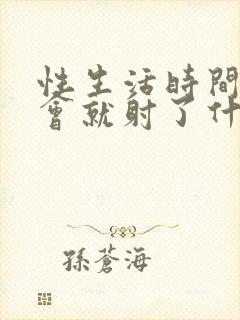 性生活時間
會就射了什
孫蒼海